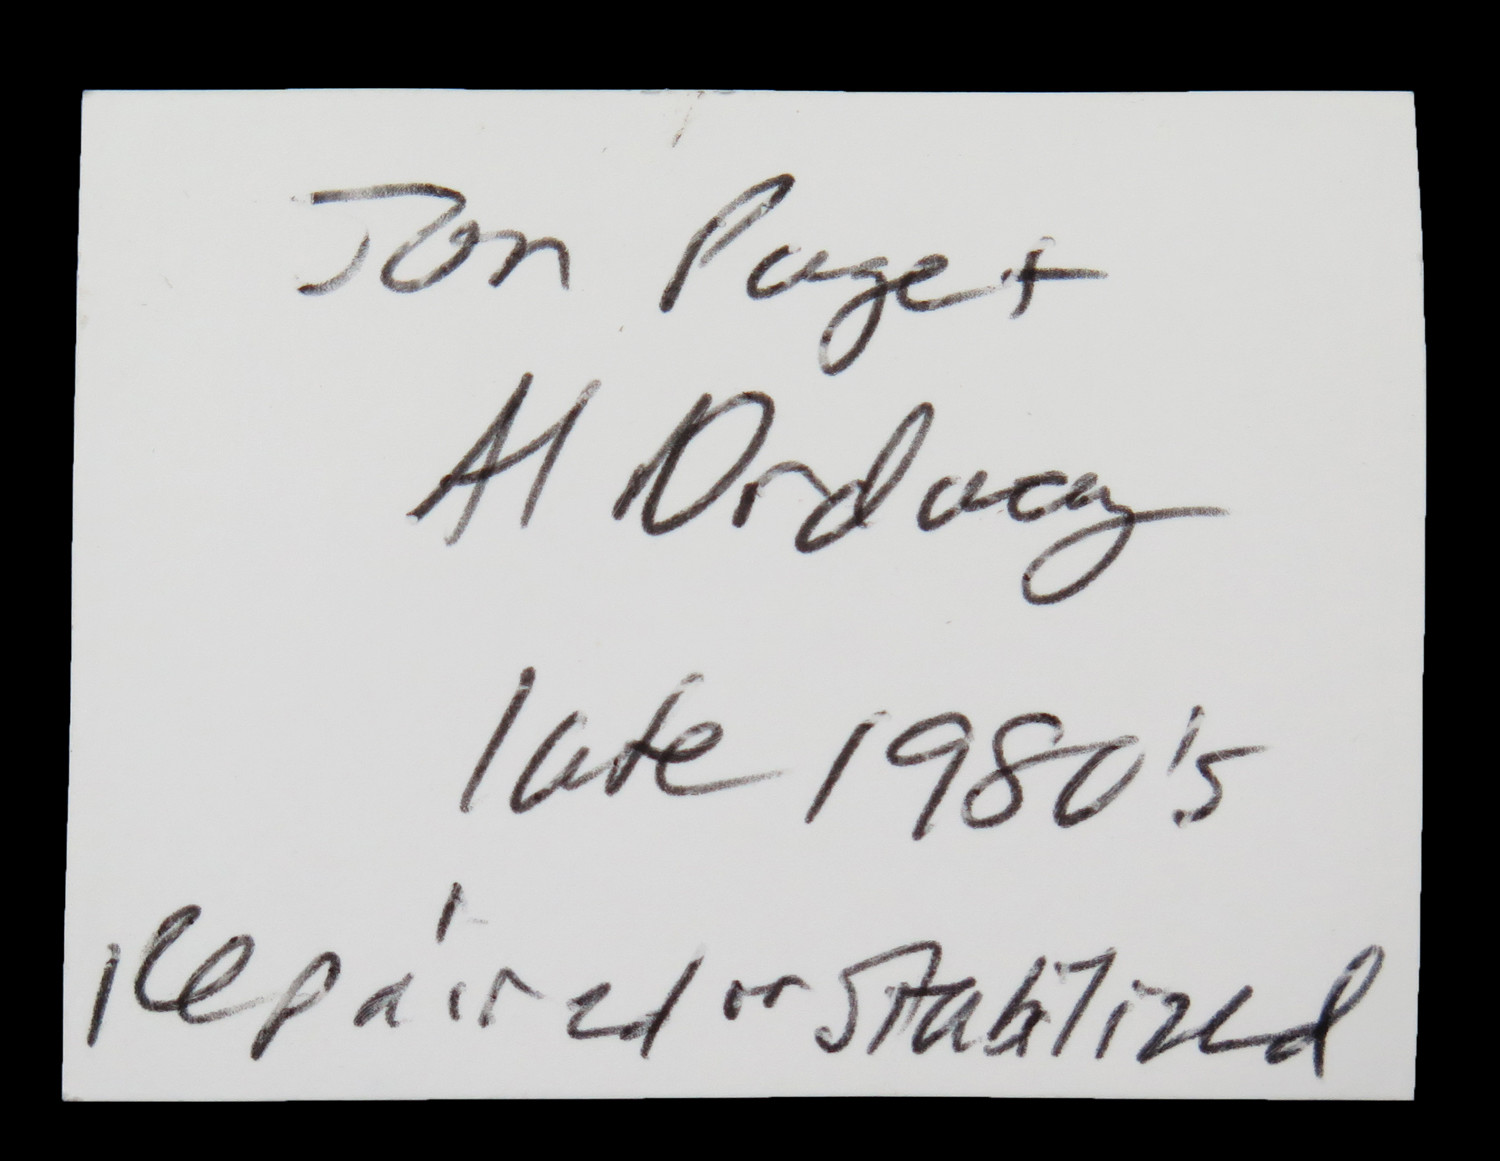 Jon Paget
Al Ordway
late 1980's
Repaired or Stabilized